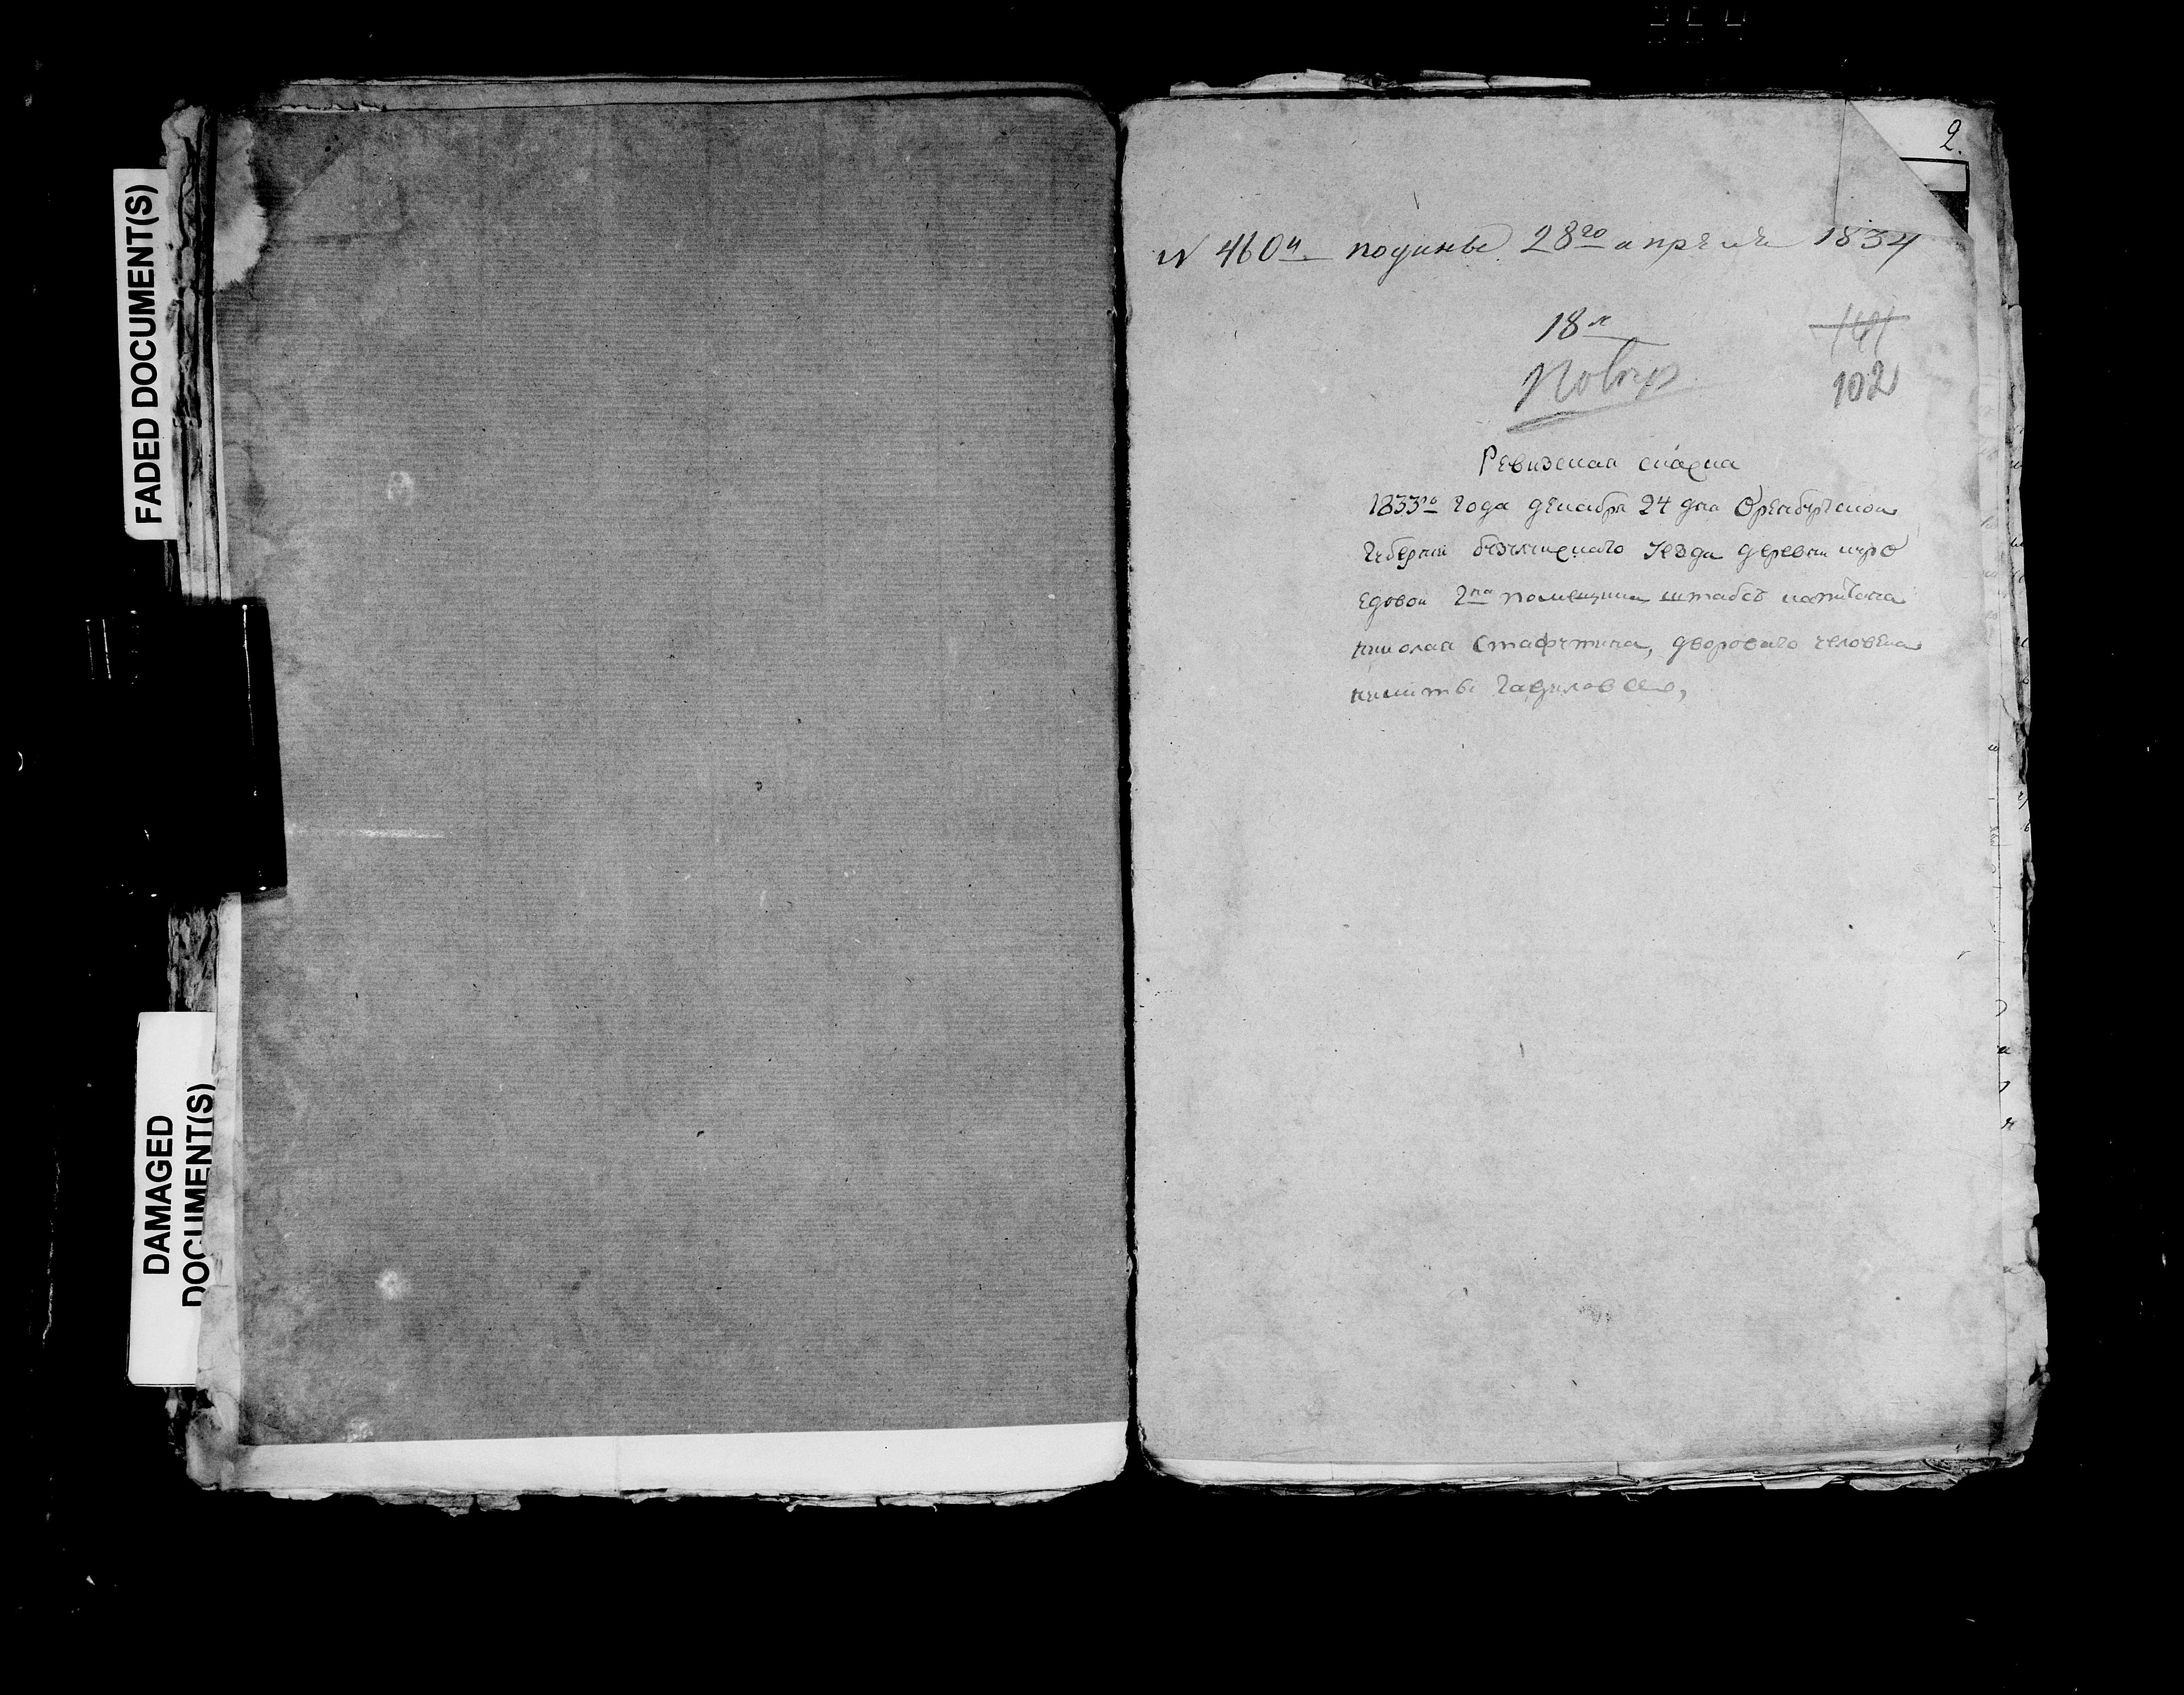 FADED DOCUMENT(S)
DAMAGED
DOCUMENT(S)
2.
N 460й подинъ 28го апреля 1834
18 л
Повер 102
Ревизская сказка
1833го года декабря 24 дня Оренбургской
Губернии бузулуцкаго уезда деревни
едовой 2на помещика штабсъ капитана
николая Стафутина, двороваго человека
никиты Гаврилова